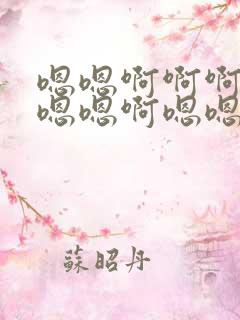 嗯嗯啊啊啊
嗯嗯啊嗯嗯
蘇昭丹